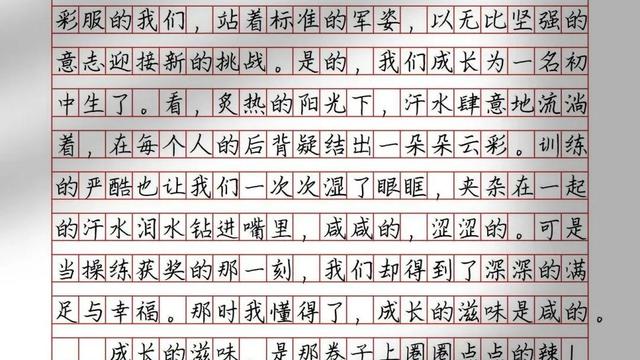 彩服的我们，站着标准的军姿，以无比坚强的
意志迎接新的挑战。是的，我们成长为一名初
中生了。看，炙热的阳光下，汗水肆意地流淌
着，在每个人的后背疑结出一朵朵云彩。训练
的严酷也让我们一次次湿了眼眶，夹杂在一起
的汗水泪水钻进嘴里，咸咸的，涩涩的。可是
当操练获奖的那一刻，我们却得到了深深的满
足与幸福。那时我懂得了，成长的滋味是咸的。
成长的滋味，是那卷子上圈圈点点的辣！